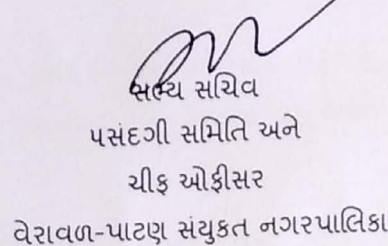 સભ્ય સચિવ
પસંદગી સમિતિ અને
ચીફ ઓફીસર
વેરાવળ-પાટણ સંયુકત નગરપાલિકા